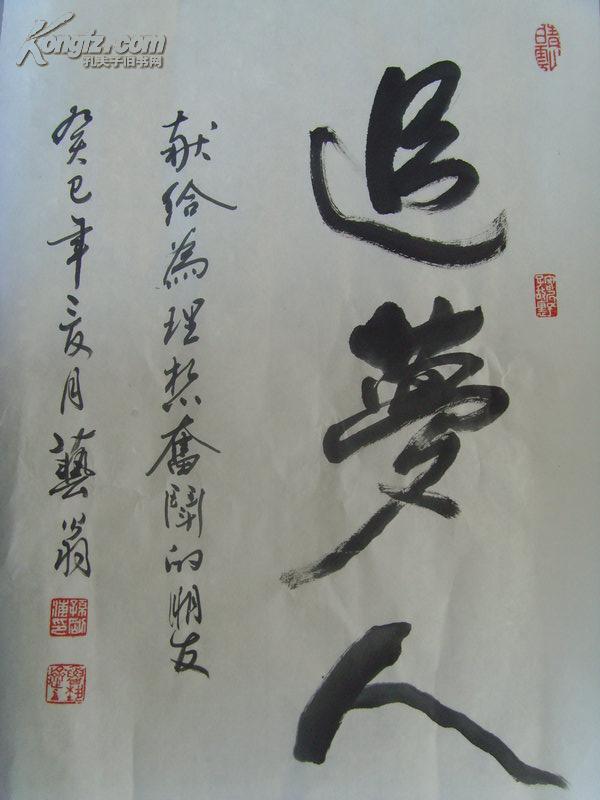 追夢人
献给為理想奮鬥的朋友
癸巳年夏月藝翁
Kongfz.com
孔夫子旧书网